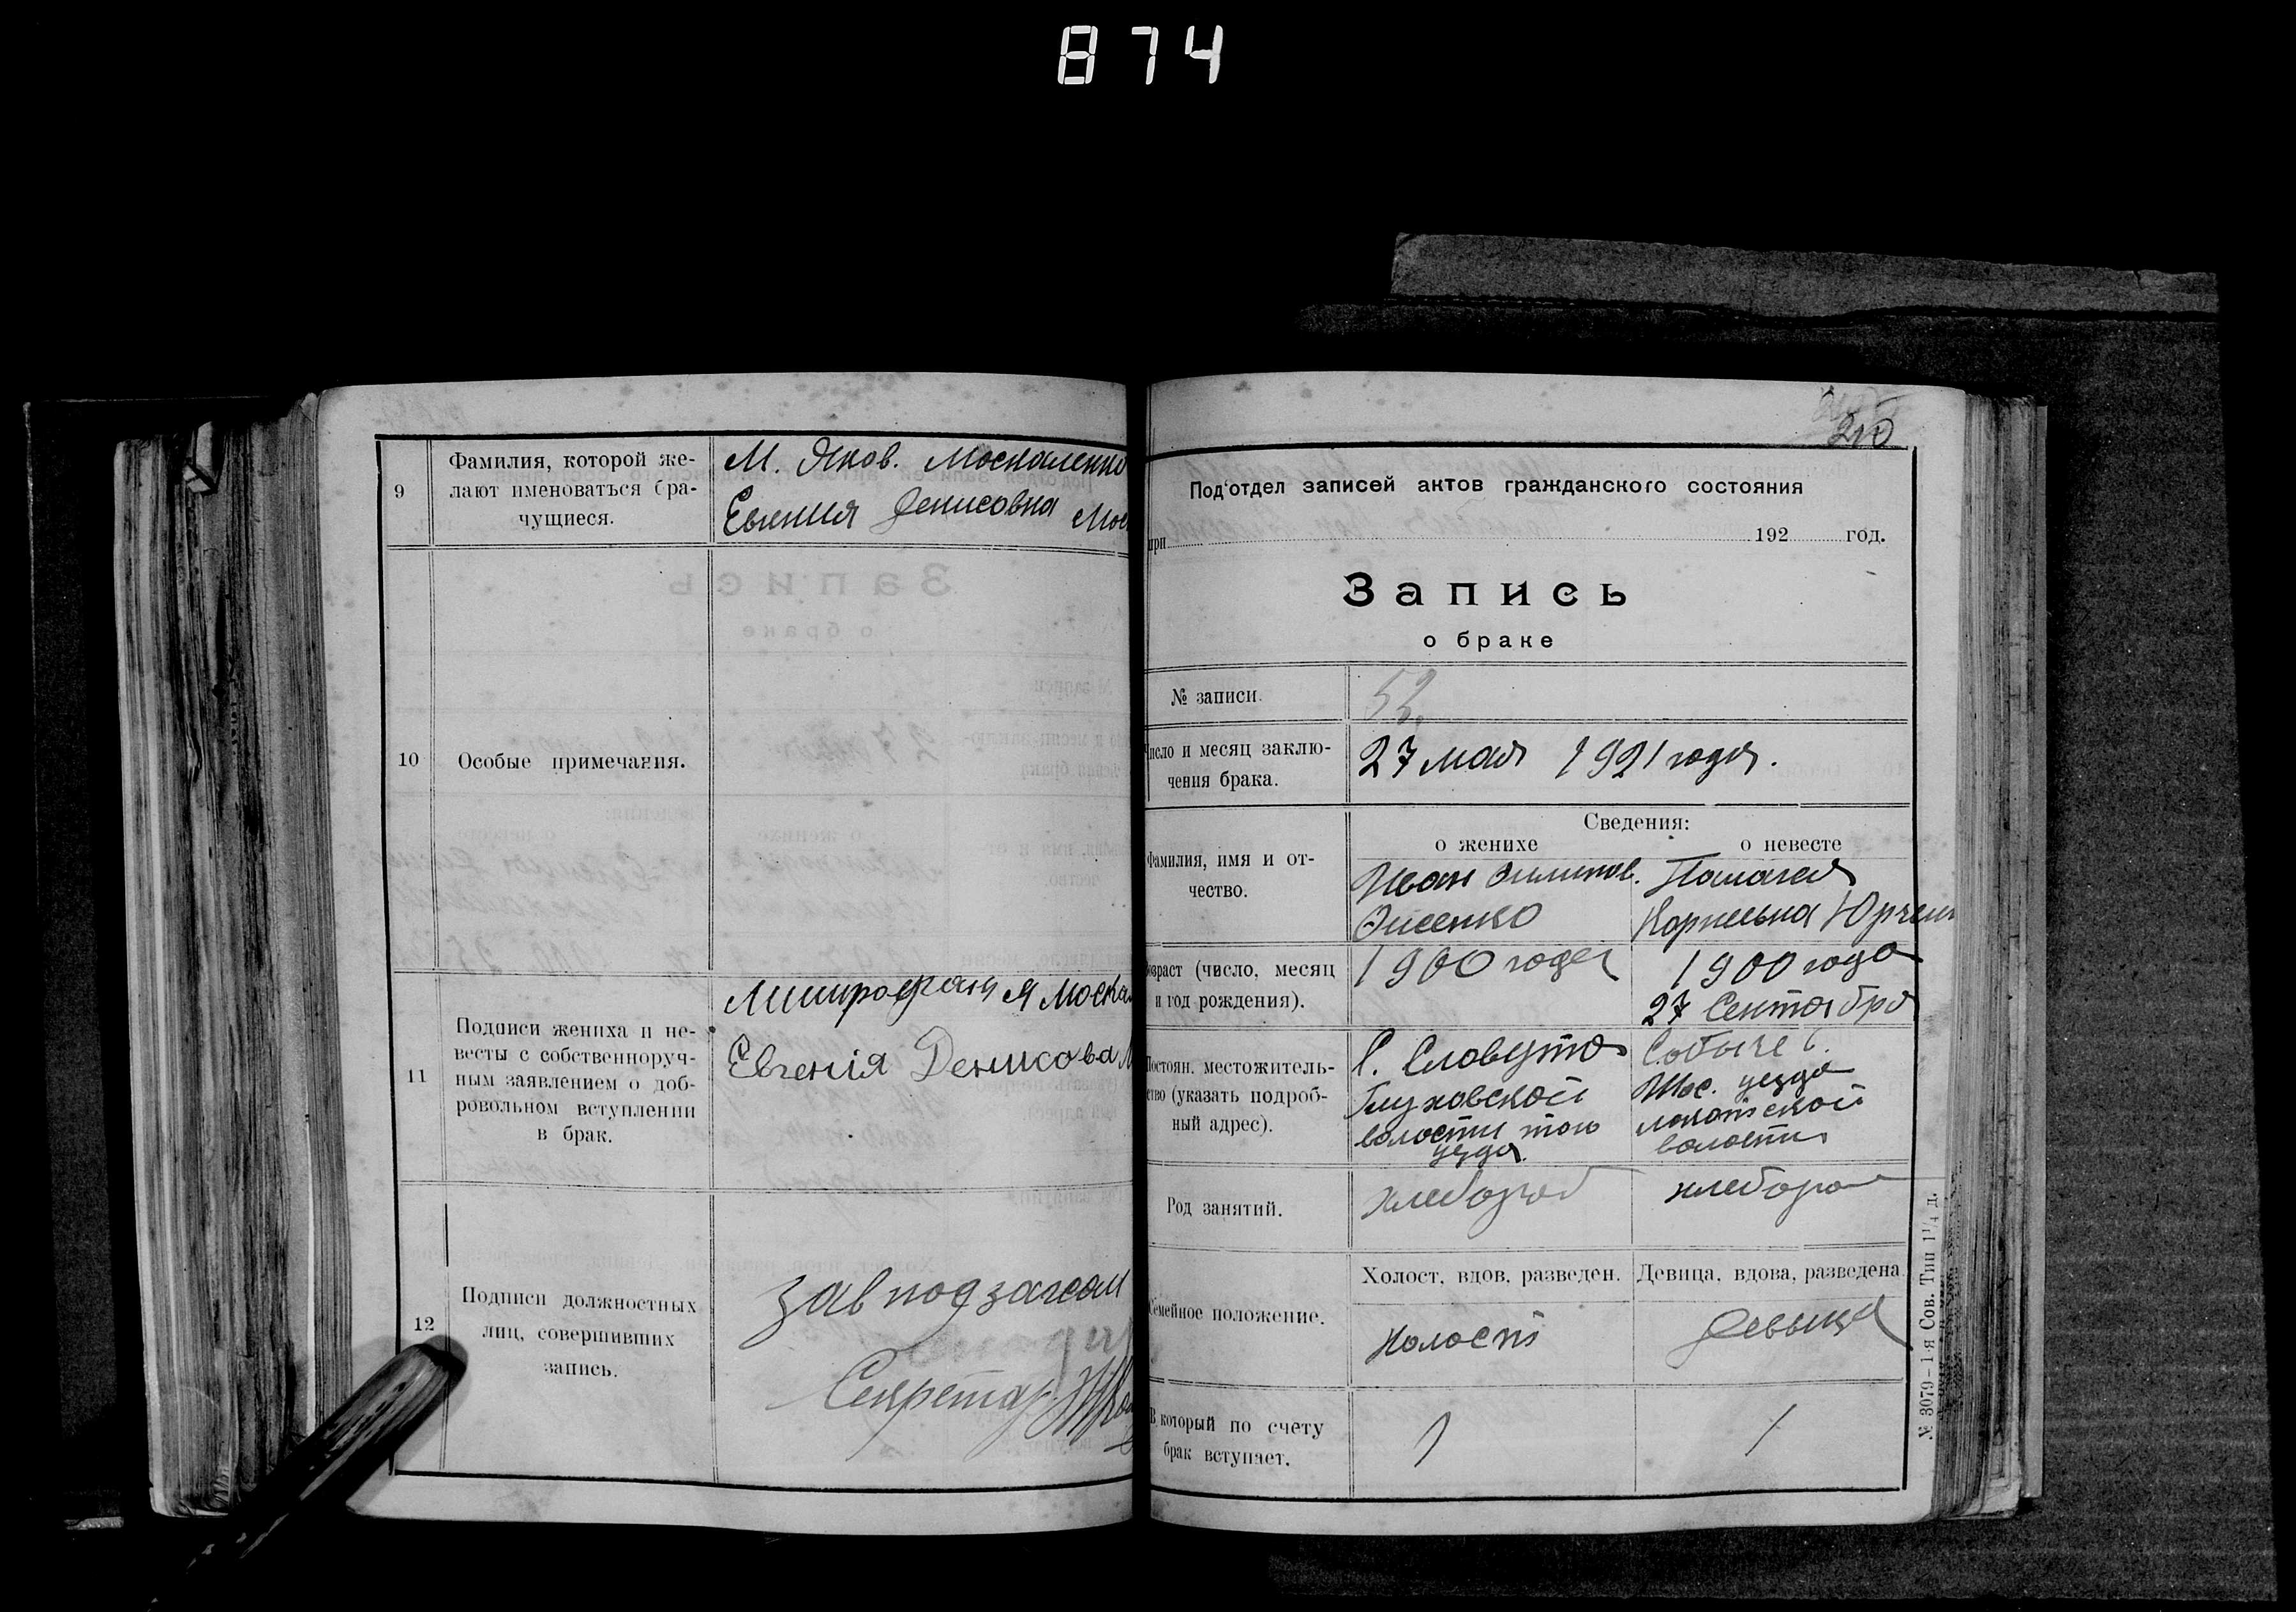 874
9
Фамилия, которой же-
лают именоваться бра-
чущиеся.
М. Яков. Москаленко
Евгения Денисовна Мос
10
Особые примечания.
11
Подписи жениха и не-
весты с собственноруч-
ным заявлением о доб-
ровольном вступлении
в брак.
Митрофан Я Моска
Евгенія Денисова М
12
Подписи должностных
лиц, совершивших
запись.
Зав подзагсом
Секретар
210
Под'отдел записей актов гражданского состояния
при 192 год.
Запись
о браке
№ записи.
52.
Число и месяц заклю-
чения брака.
27 мая 1921 года.
Сведения:
о женихе
о невесте
Фамилия, имя и от-
чество.
Иван
Палагея
Юрчен
возраст (число, месяц
и год рождения).
1900 года
1900 года
27 Сентября
Постоян. местожитель-
ство (указать подроб-
ный адрес).
С. Словута
Глуховской
волости того
уезда.
Собыче С.
уезда
волости
Род занятий.
хлебороб
хлебороб
Семейное положение.
Холост, вдов, разведен.
Девица, вдова, разведена
Холост
девыця
В который по счету
брак вступает.
1
1
№ 3079-1-я Сов. Тип 1¼ д.